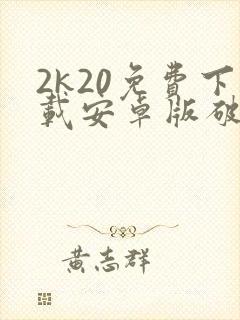 2k20免費下
載安卓版破
黃志群